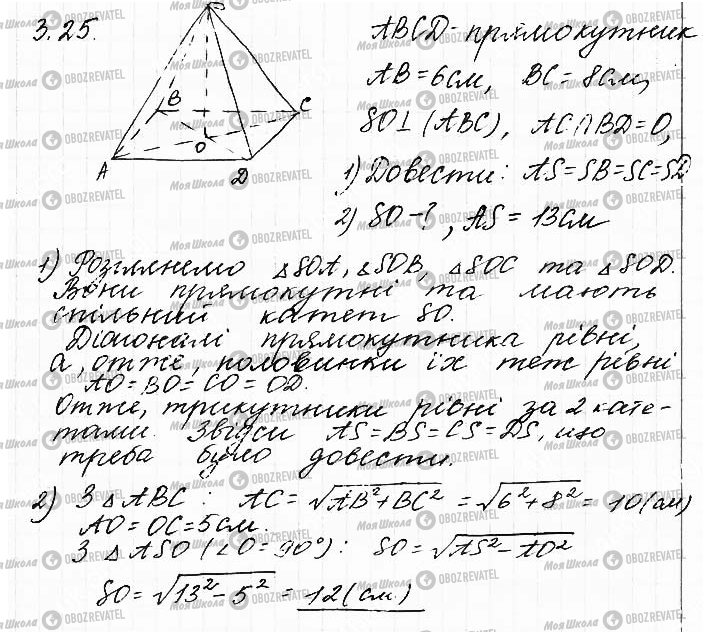 3.25.
ABCD - прямокутник
AB = 6 см, BC = 8 см,
SO ⊥ (ABC), AC ∩ BD = O,
1) Довести: AS = SB = SC = SD
2) SO - ?, AS = 13 см
B
C
O
A
D
1) Розглянемо △SOA, △SOB, △SOC та △SOD.
Вони прямокутні та мають
спільний катет SO.
Діагоналі прямокутника рівні,
а, отже половинки їх теж рівні
AO = BO = CO = OD.
Отже, трикутники рівні за 2 кате-
тами. Звідси AS = BS = CS = DS, що
треба було довести.
2) З △ABC: AC = √(AB² + BC²) = √(6² + 8²) = 10 (см)
AO = OC = 5 см.
З △ASO (∠O = 90°): SO = √(AS² - AO²)
SO = √(13² - 5²) = 12 (см.)